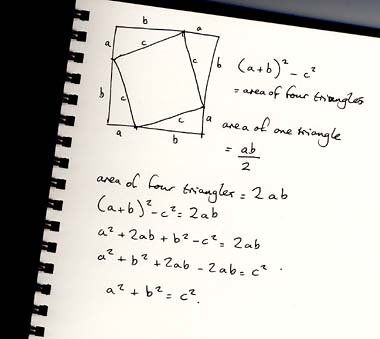 b a
a c
c b
b c
c a
a b
(a+b)² - c²
= area of four triangles
area of one triangle
= ab/2
area of four triangles = 2ab
(a+b)² - c² = 2ab
a² + 2ab + b² - c² = 2ab
a² + b² + 2ab - 2ab = c² .
a² + b² = c².